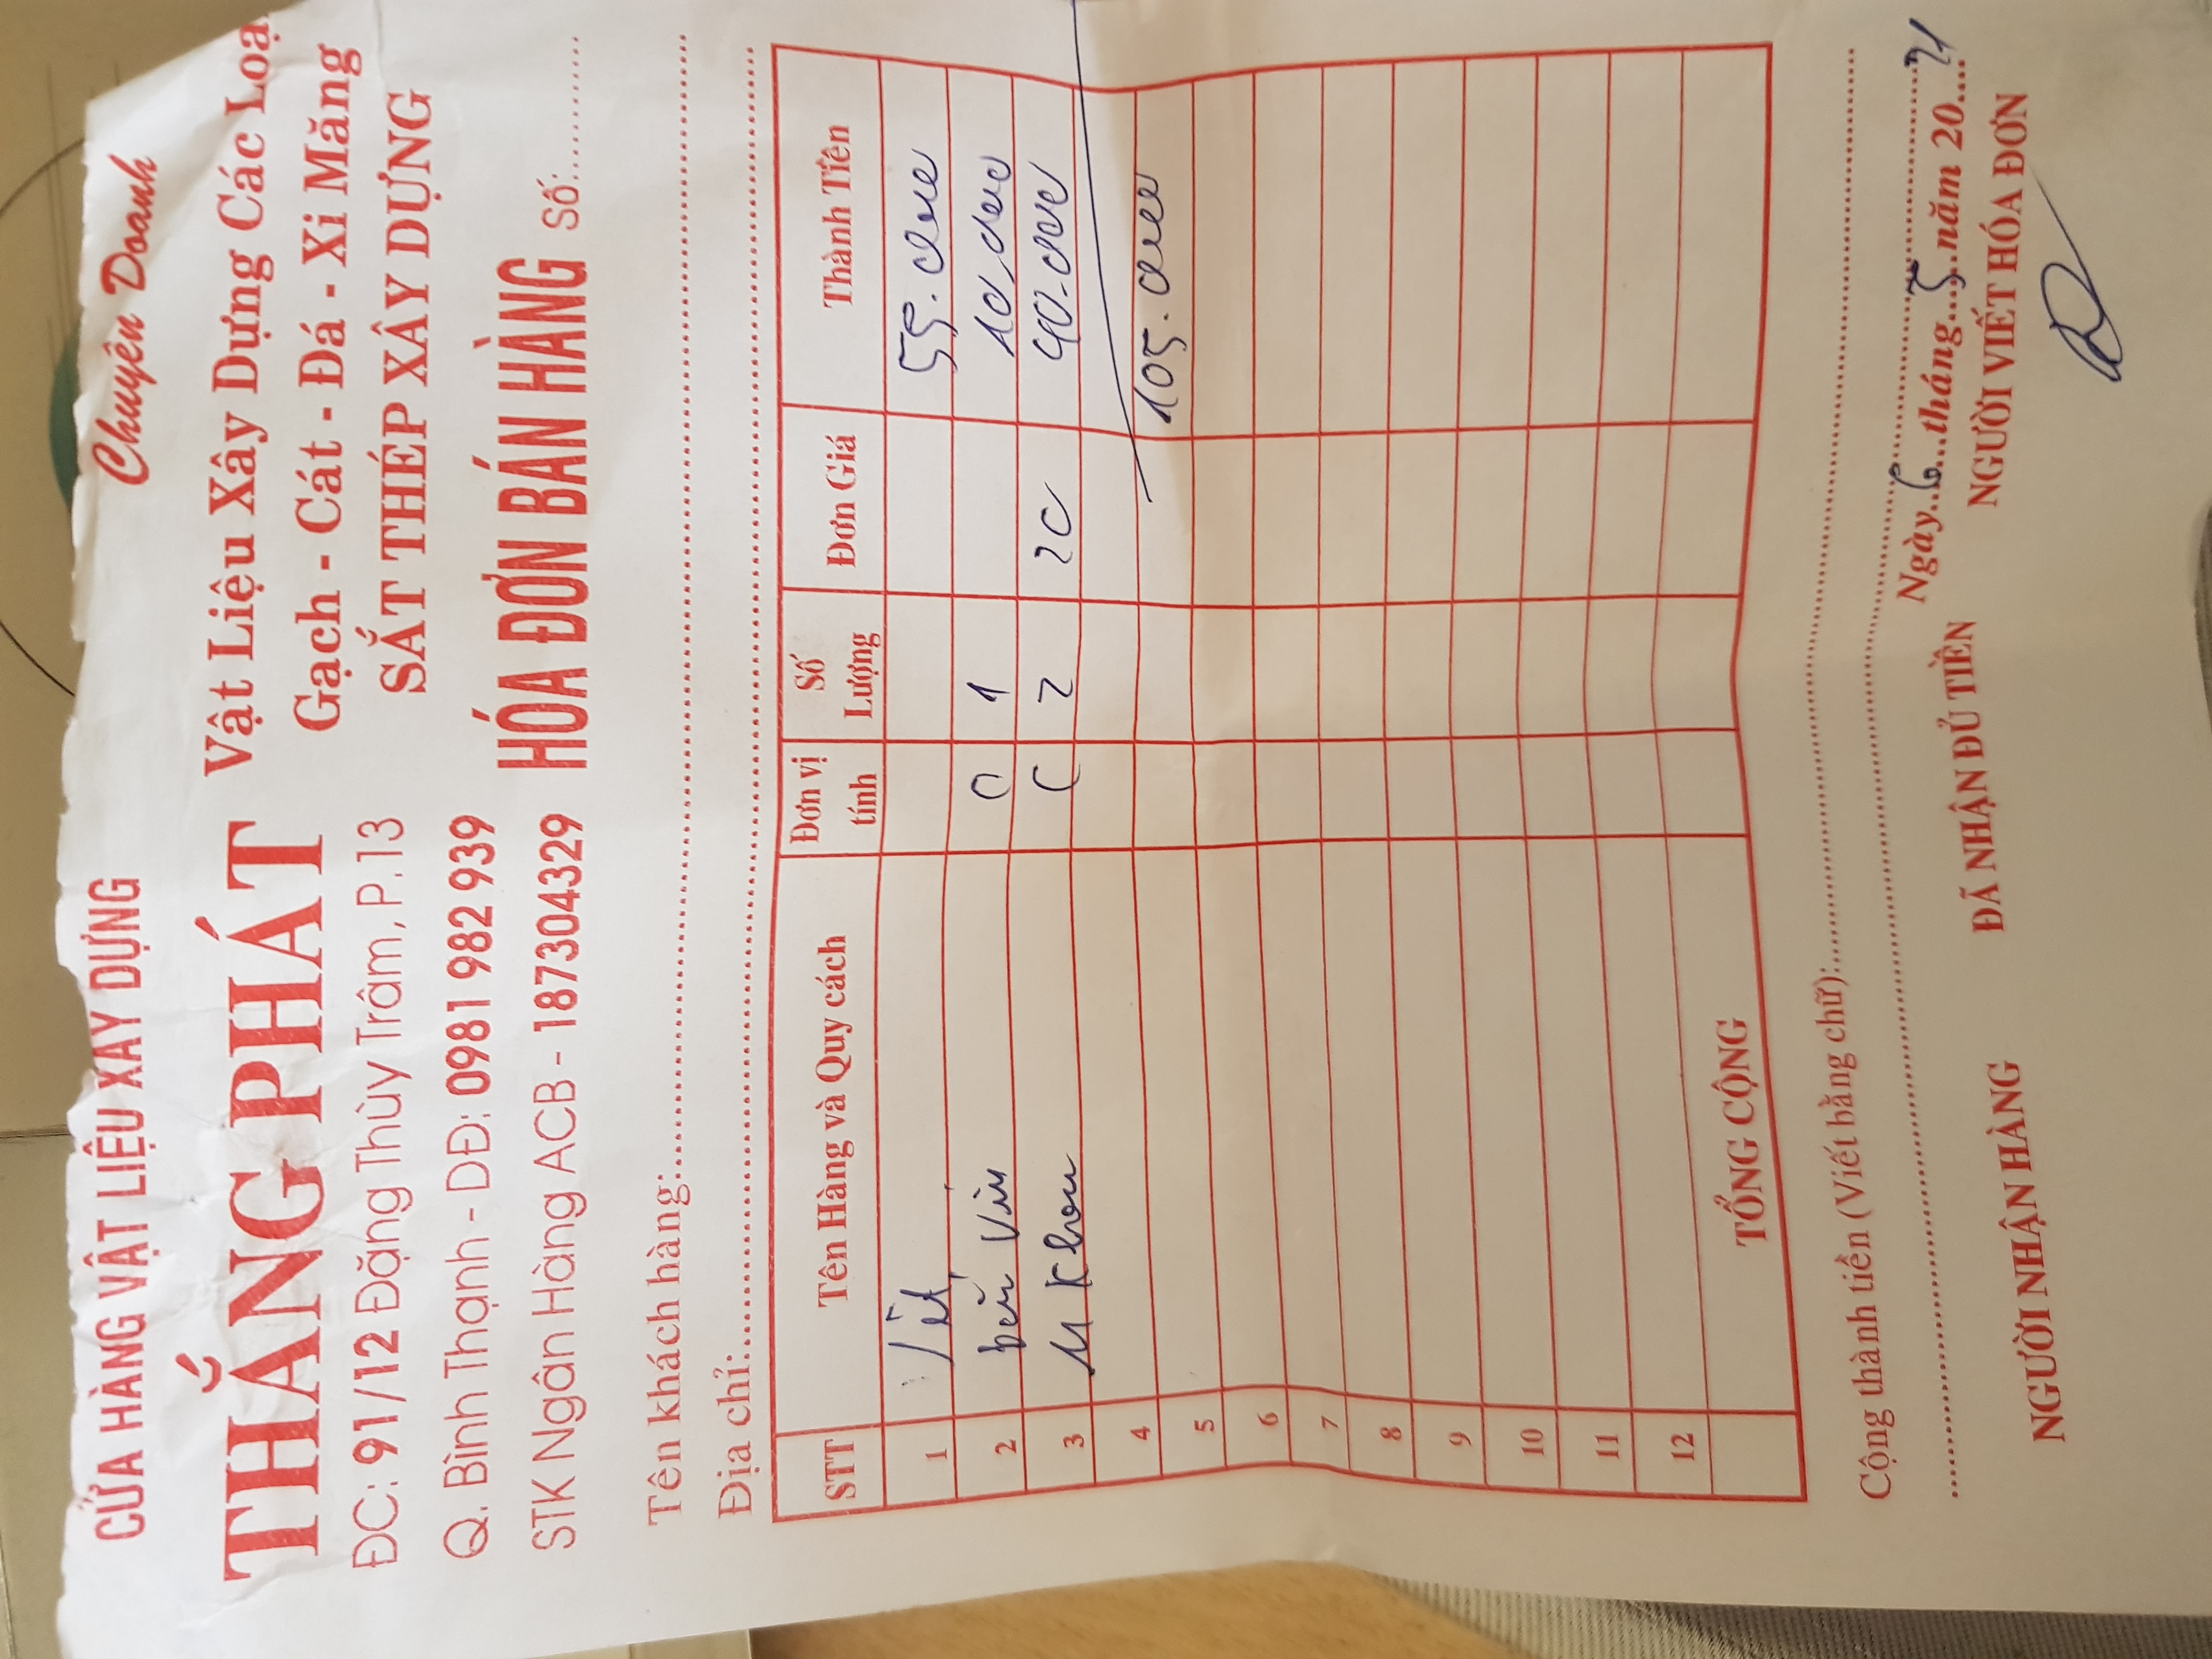 CỬA HÀNG VẬT LIỆU XAY DỰNG
THẮNG PHÁT
ĐC: 91/12 Đặng Thùy Trâm, P.13
Q. Bình Thạnh - DĐ: 0981 982 939
STK Ngân Hàng ACB - 187304329
Chuyên Doanh
Vật Liệu Xây Dựng Các Loạ
Gạch - Cát - Đá - Xi Măng
SẮT THÉP XÂY DỰNG
HÓA ĐƠN BÁN HÀNG Số:
Tên khách hàng:
Địa chỉ:
STT Tên Hàng và Quy cách Đơn vị tính Số Lượng Đơn Giá Thành Tiền
1 55.000
2 1 10.000
3 C 2 20 40.000
4 105.000
5
6
7
8
9
10
11
12
TỔNG CỘNG
Cộng thành tiền (Viết bằng chữ):
Ngày 6 tháng 5 năm 2021
NGƯỜI NHẬN HÀNG ĐÃ NHẬN ĐỦ TIỀN NGƯỜI VIẾT HÓA ĐƠN